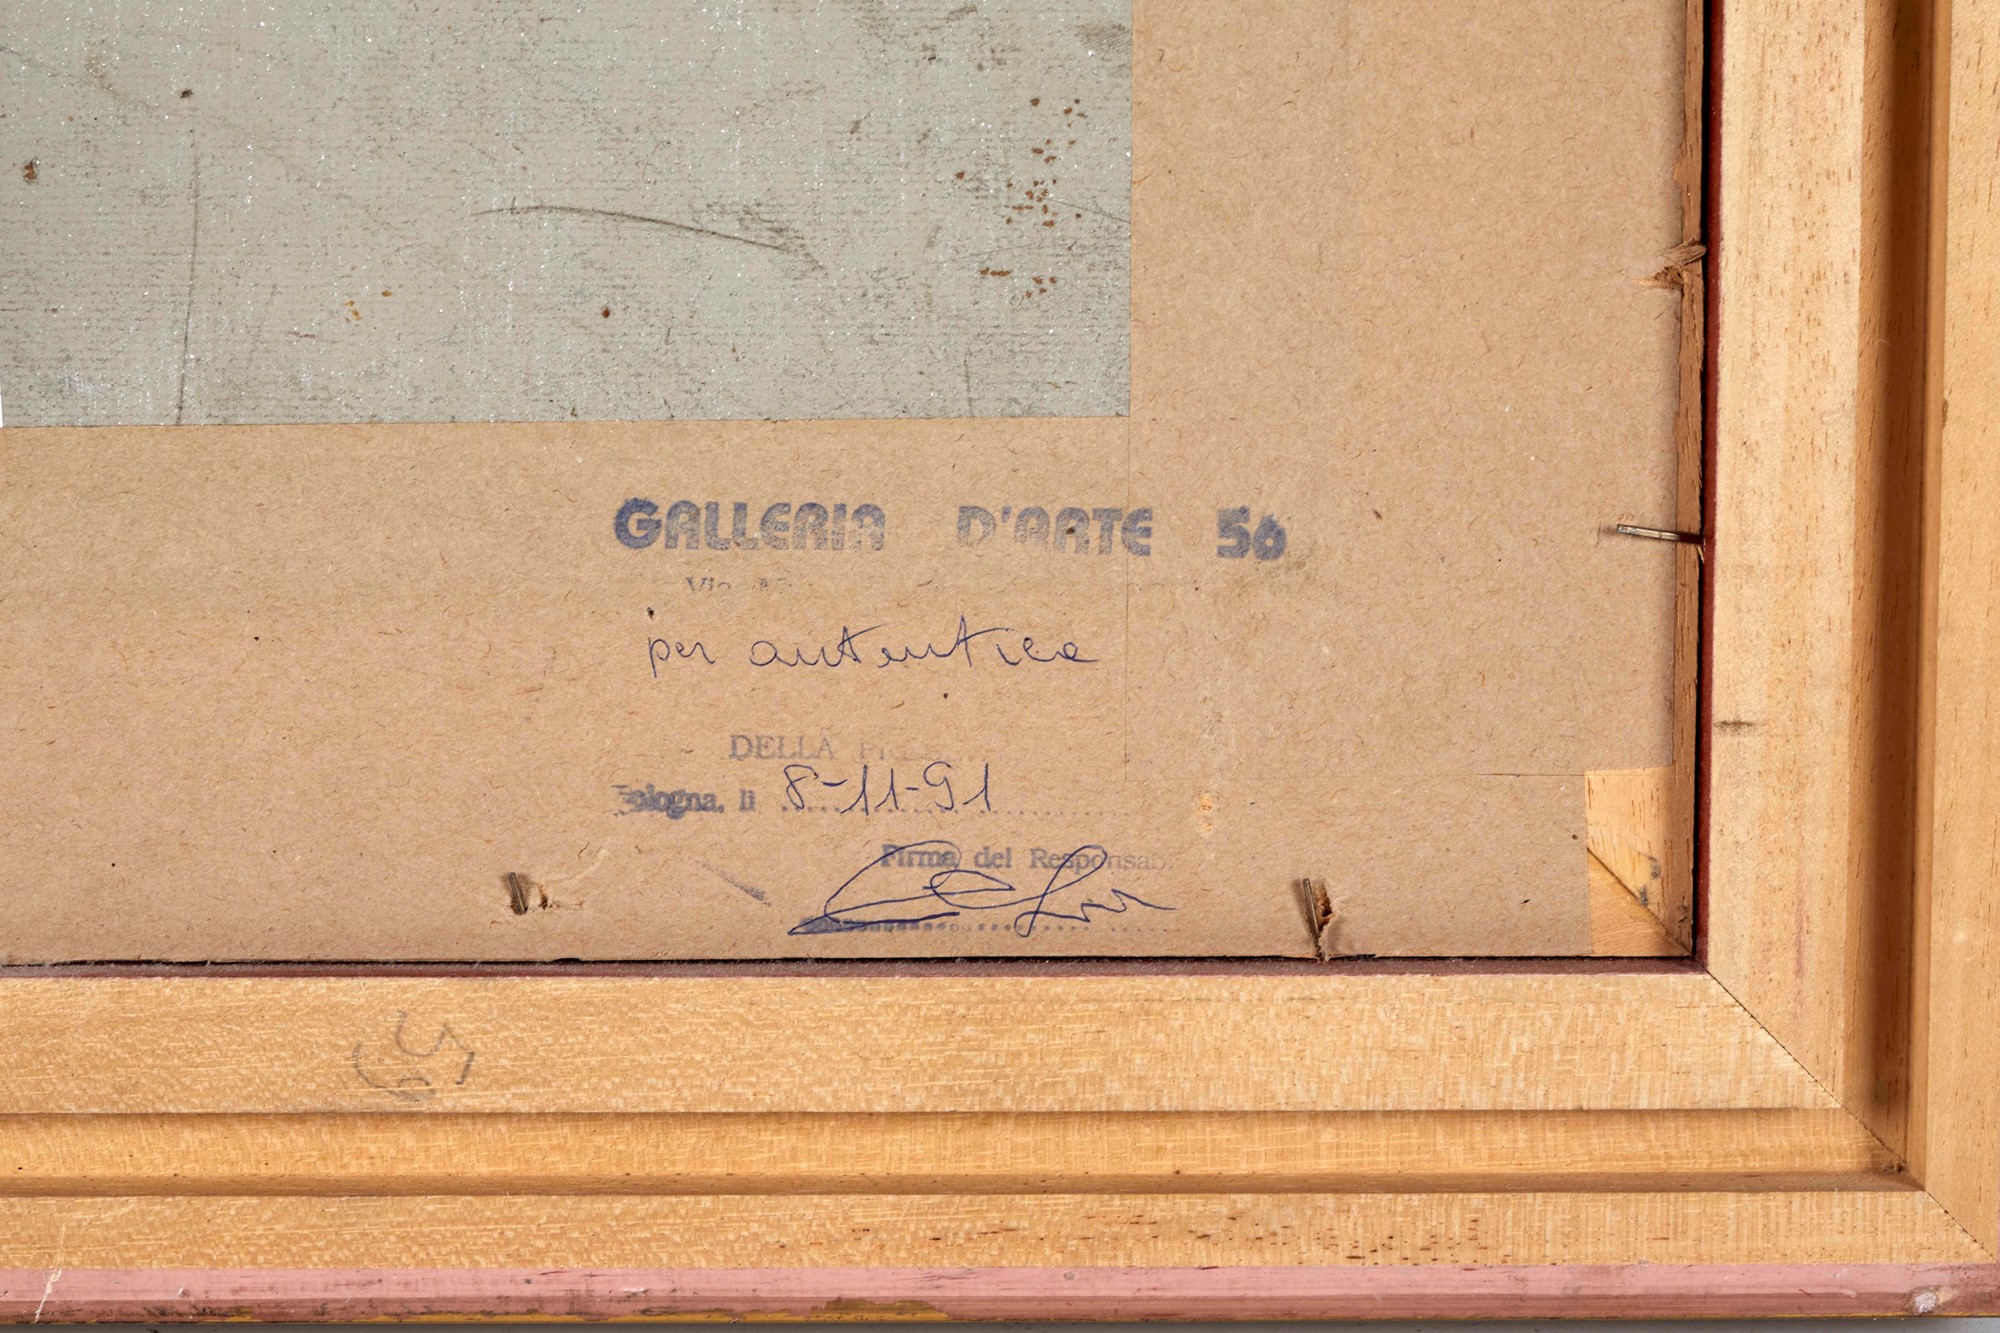 GALLERIA D'ARTE 56
Via
per autentica
DELLA
Bologna, lì 8-11-91
Firma del Responsab